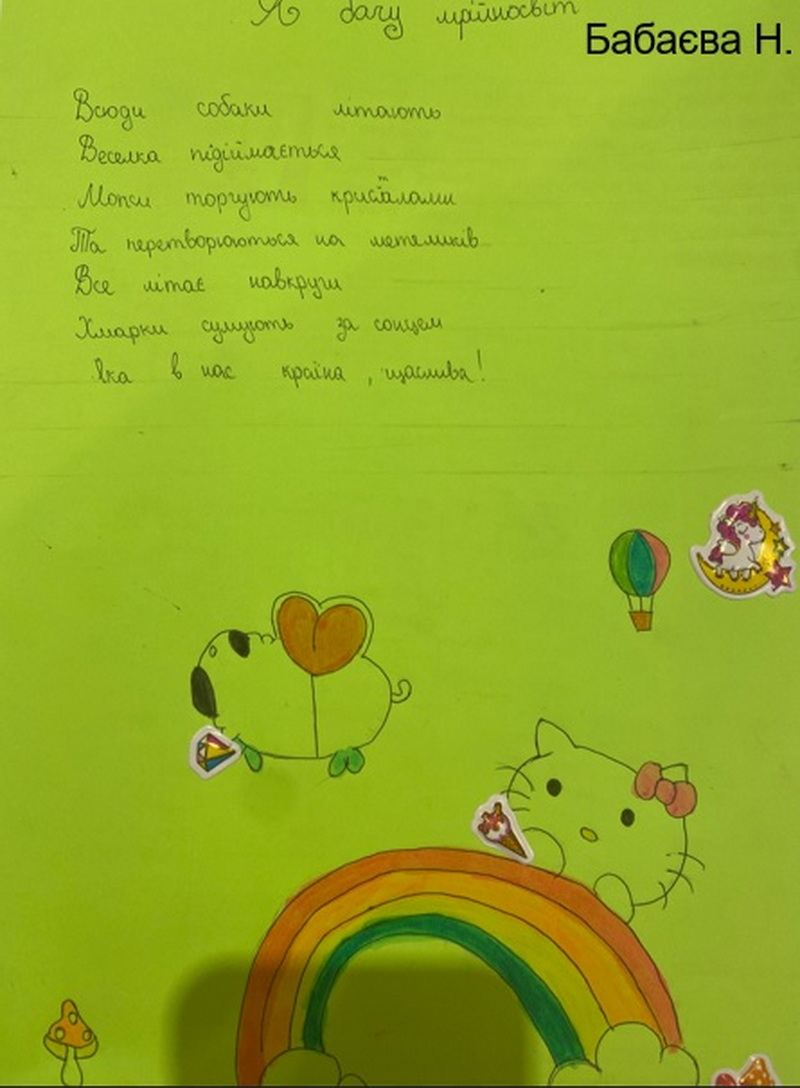 Я бачу мрійносвіт
Бабаєва Н.
Всюди собаки літають
Веселка підіймається
Мопси торгують кристалами
Та перетворюються на метеликів
Все літає навкруги
Хмарки сумують за сонцем
Яка в нас країна , щаслива!